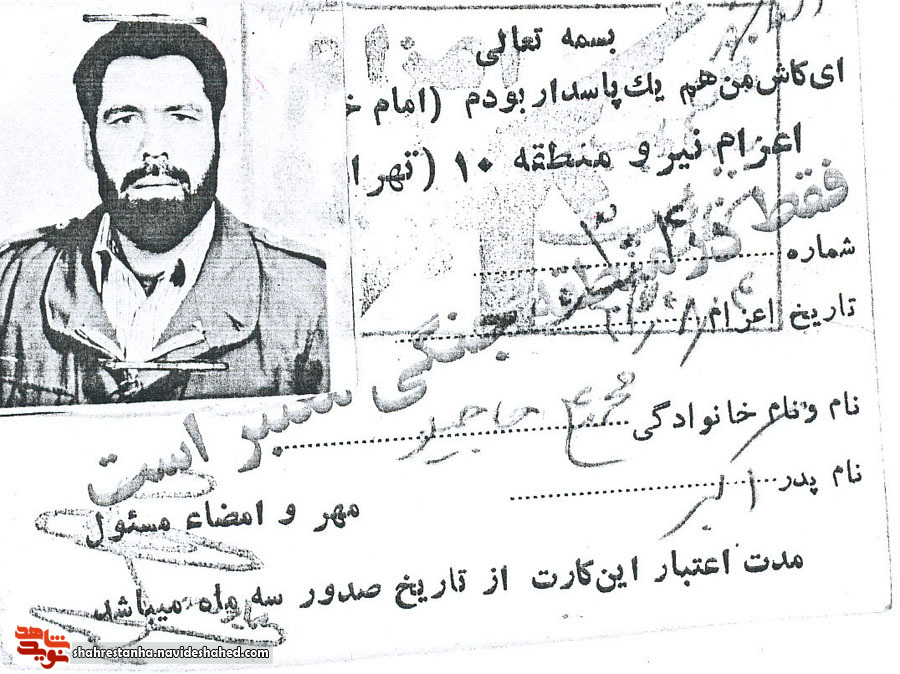 بسمه تعالی
ای کاش من هم یک پاسدار بودم (امام خ
اعزام نیرو منطقه ۱۰ (تهرا
فقط در منطقه جنگی معتبر است
شماره
تاریخ اعزام
نام و نام خانوادگی
نام پدر اکبر
مهر و امضاء مسئول
مدت اعتبار این کارت از تاریخ صدور سه ماه میباشد
نوید شاهد
shahrestanha.navideshahed.com